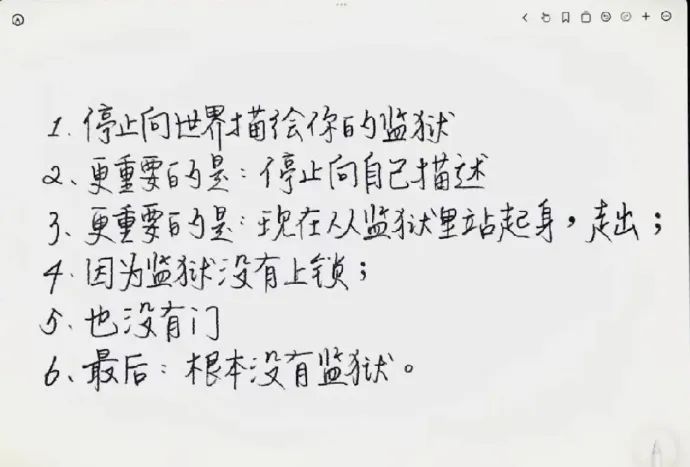 1. 停止向世界描绘你的监狱
2、更重要的是：停止向自己描述
3、更重要的是：现在从监狱里站起身，走出；
4、因为监狱没有上锁；
5、也没有门
6、最后：根本没有监狱。